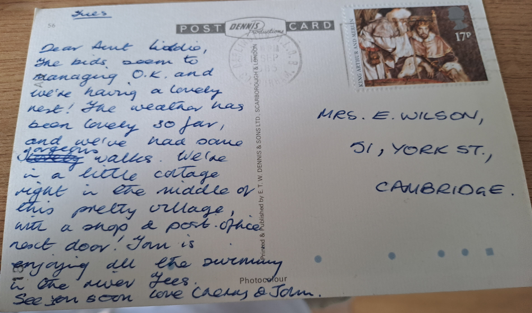 Tues
POST DENNIS Productions CARD
17P
KING ARTHUR AND MERLIN
Dear Aunt Liddie,
The kids seem to
managing O.K. and
we're having a lovely
rest! The weather has
been lovely so far,
and we've had some
gorgeous
walks. We're
in a little cottage
right in the middle of
this pretty village,
with a shop & post-office
next door! Tom is
enjoying all the swimming
in the river Tees.
See you soon love Cherry & John.
MRS. E. WILSON,
51, YORK ST.,
CAMBRIDGE.
Printed & Published by E. T. W. DENNIS & SONS LTD., SCARBOROUGH &
Photocolour